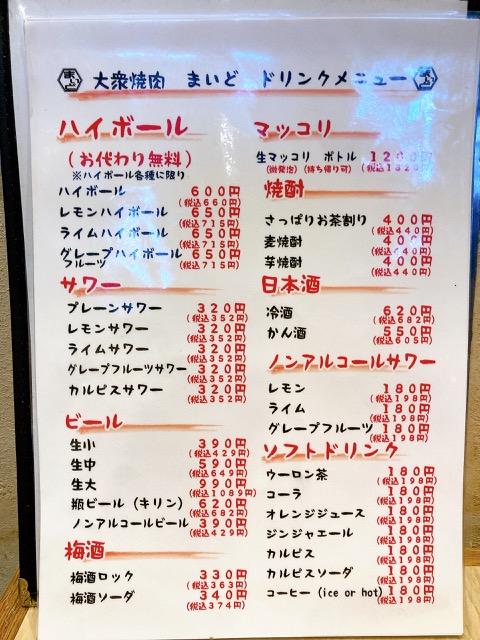 まいど 大衆焼肉 まいど ドリンクメニュー まいど
ハイボール
(お代わり無料)
※ハイボール各種に限り
ハイボール 600円
(税込660円)
レモンハイボール 650円
(税込715円)
ライムハイボール 650円
(税込715円)
グレープフルーツハイボール 650円
(税込715円)
サワー
プレーンサワー 320円
(税込352円)
レモンサワー 320円
(税込352円)
ライムサワー 320円
(税込352円)
グレープフルーツサワー 320円
(税込352円)
カルピスサワー 320円
(税込352円)
ビール
生小 390円
(税込429円)
生中 590円
(税込649円)
生大 990円
(税込1089円)
瓶ビール(キリン) 620円
(税込682円)
ノンアルコールビール 390円
(税込429円)
梅酒
梅酒ロック 330円
(税込363円)
梅酒ソーダ 340円
(税込374円)
マッコリ
生マッコリ ボトル 1200円
(微発泡)(持ち帰り可) (税込1320円)
焼酎
さっぱりお茶割り 400円
(税込440円)
麦焼酎 400円
(税込440円)
芋焼酎 400円
(税込440円)
日本酒
冷酒 620円
(税込682円)
かん酒 550円
(税込605円)
ノンアルコールサワー
レモン 180円
(税込198円)
ライム 180円
(税込198円)
グレープフルーツ 180円
(税込198円)
ソフトドリンク
ウーロン茶 180円
(税込198円)
コーラ 180円
(税込198円)
オレンジジュース 180円
(税込198円)
ジンジャエール 180円
(税込198円)
カルピス 180円
(税込198円)
カルピスソーダ 180円
(税込198円)
コーヒー(ice or hot) 180円
(税込198円)